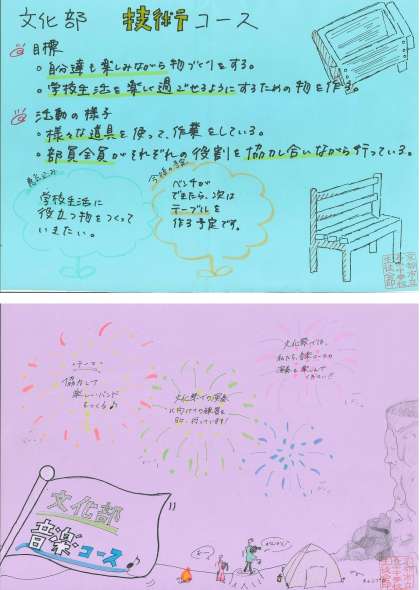 文化部 技術コース
目標
・自分達も楽しみながら物づくりをする。
・学校生活を楽しく過ごせるようにするための物を作る。
活動の様子
・様々な道具を使って、作業をしている。
・部員全員がそれぞれの役割を協力し合いながら行っている。
意気込み
学校生活に
役立つ物をつくって
いきたい。
今後の予定
ベンチが
できたら、次は
テーブルを
作る予定です。
・テーマ・
協力して
楽しいバンド
をつくる♪
文化祭での演奏
に向けての練習を
日々、行っています!
文化祭では、
私たち、音楽コースの
演奏を楽しんで
ください!!
文化部
音楽コース